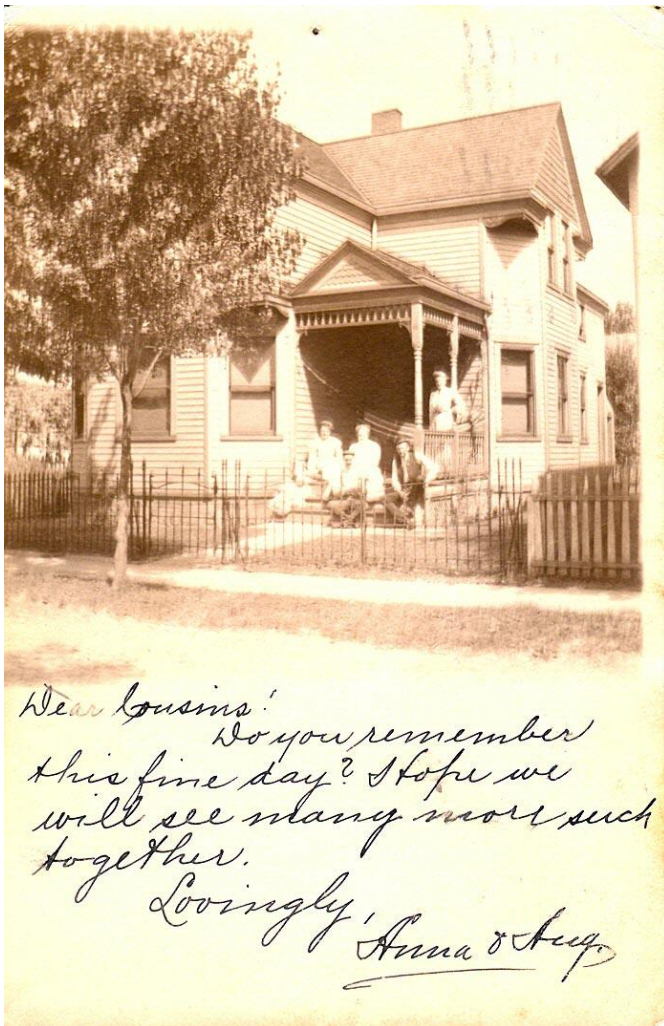 Dear Cousins!
Do you remember
this fine day? Hope we
will see many more such
together.
Lovingly,
Anna & Aug.